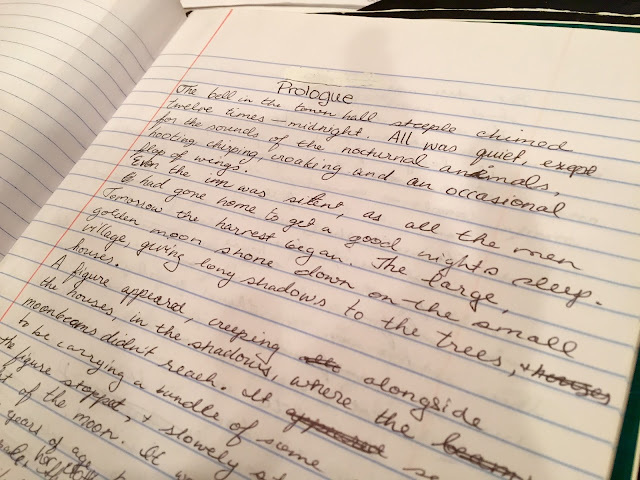 Prologue
The bell in the town hall steeple chimed
twelve times — midnight. All was quiet, exept
for the sounds of the nocturnal animals,
hooting, chirping, croaking and an occasional
flap of wings.
Even the inn was silent, as all the men
had gone home to get a good nights sleep.
Tomorrow the harvest began. The large,
golden moon shone down on the small
village, giving long shadows to the trees, + houses
houses.
A figure appeard, creeping alongside
the houses, in the shadows, where the beam
moonbeams didn't reach. It appeared se
to be carrying a bundle of some
figure stoppet, + slowely st
of the moon. It w
years of age